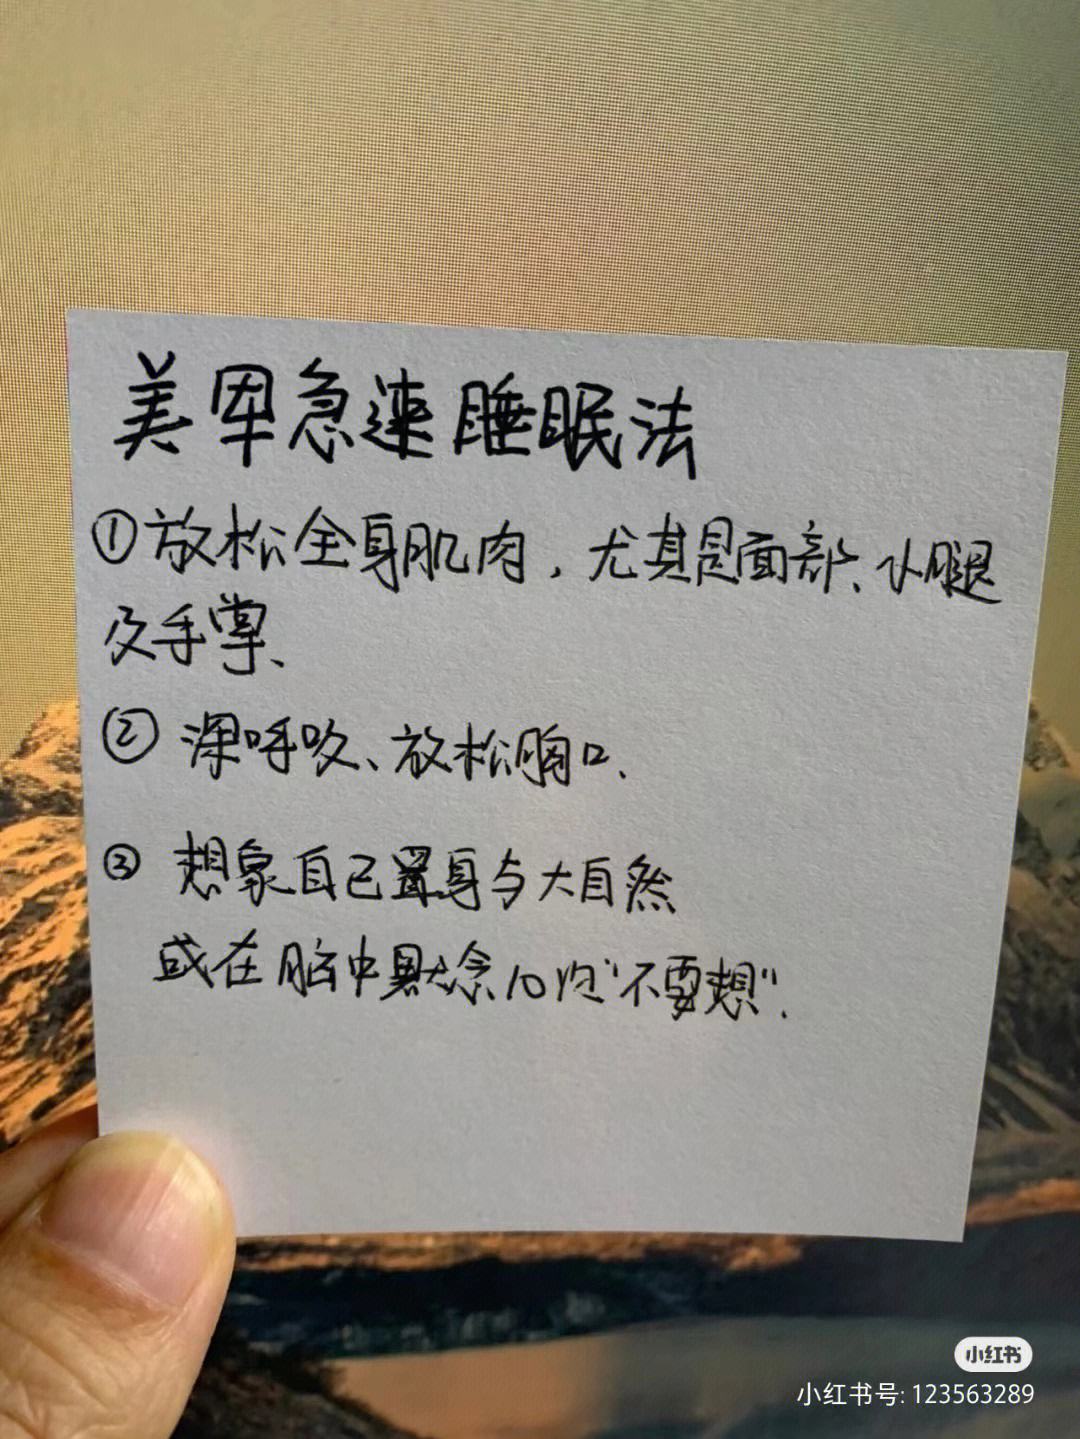 美军急速睡眠法
①放松全身肌肉，尤其是面部、小腿
及手掌、
② 深呼吸、放松胸口、
③ 想象自己置身与大自然
或在脑中默念10次“不要想”.
小红书
小红书号: 123563289